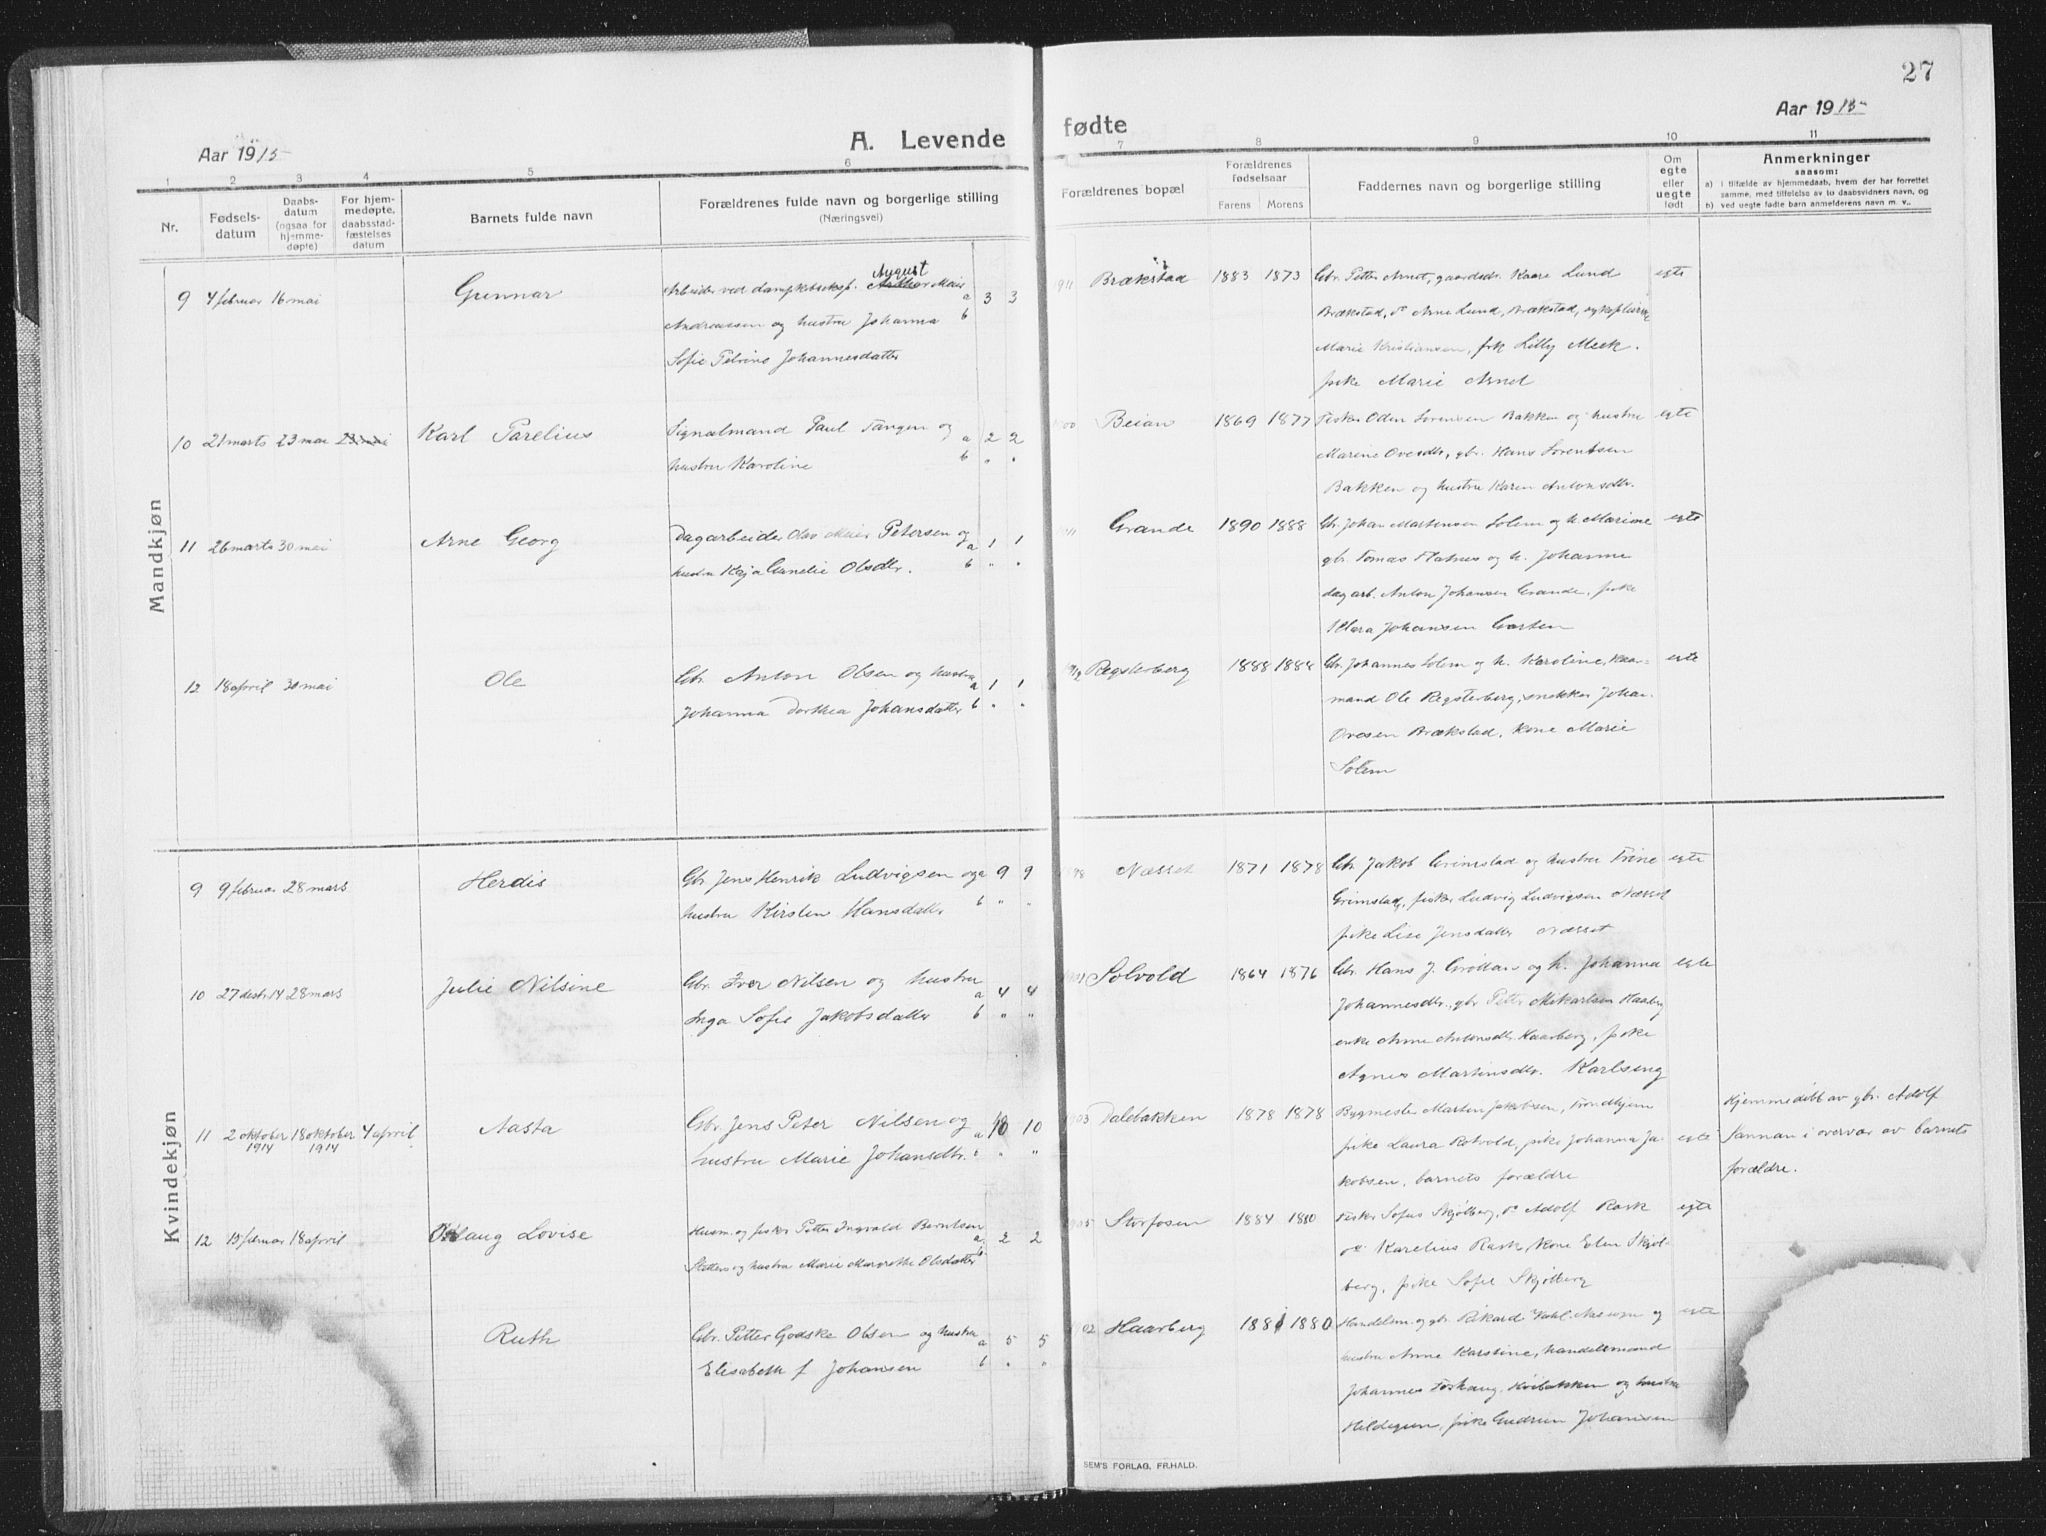 27
Aar 1915
A. Levende
fødte
Aar 1915
1 2 3 4 5 6
7 8 9 10 11
Nr.
Fødsels-
datum
Daabs-
datum
(ogsaa for
hjemme-
døpte)
For hjem-
medøpte,
daabsstad-
fæstelses
datum
Barnets fulde navn
Forældrenes fulde navn og borgerlige stilling
(Næringsvei)
Forældrenes bopæl
Forældrenes
fødselsaar
Farens Morens
Faddernes navn og borgerlige stilling
Om
egte
eller
uegte
født
Anmerkninger
saasom:
a) i tilfælde av hjemmedaab, hvem der har forrettet
samme, med tilføielse av to daabsvidners navn, og
b) ved uegte fødte barn anmelderens navn m. v..
Mandkjøn
9 4 februar 16 mai Gunnar
Arbeider ved dampkbeksp. August Arthur Meier a 3 3
Andreassen og hustru Johanna b
Sofie Petrine Johannesdatter
1911 Brækstad 1883 1873 Gbr. Petter Arnet, gaardsbr. Kaare Lund egte
Brækstad, do Arne Lund, Brækstad, sykepleierske
Marie Kristiansen, frk Lilly Meek.
pike Marie Arnet
10 21 marts 23 mai 23 mai Karl Parelius
Signalmand Paul Tangen og a 2 2
hustru Karoline b " "
Beian 1869 1877 Fisker Oden Sorensen Bakken og hustru egte
Marine Ovesdtr, gbr. Hans Lorentsen
Bakken og hustru Karen Antonsdtr.
11 26 marts 30 mai Arne Georg
Dagarbeider Olav Meier Petersen og a 1 1
hustru Kaja Amelie Olsdtr. b " "
1911 Grande 1890 1888 Gbr. Johan Martinsen Solem og h. Marianne egte
gbr. Tomas Flatnes og h. Johanne
dagarb. Anton Johansen Grande, pike
Klara Johansen Garten
12 18 april 30 mai Ole
Gbr. Anton Olsen og hustru a 1 1
Johanna Dorthea Johansdatter b " "
1912 Regsterberg 1888 1884 Gbr. Johannes Solem og h. Karoline, kaar- egte
mand Ole Regsterberg, snekker Johan
Ovesen Brækstad, kone Marie
Solem
Kvindekjøn
9 9 februar 28 mars Herdis
Gbr. Jens Henrik Ludvigsen og a 9 9
hustru Kirsten Hansdatter b " "
1898 Næsset 1871 1878 Gbr. Jakob Grimstad og hustru Trine egte
Grimstad, fisker Ludvig Ludvigsen Næsset
pike Lise Jensdatter Næsset
10 27 desbr. 14 28 mars Julie Nilsine
Gbr. Iver Nilsen og hustru a 4 4
Inga Sofie Jakobsdatter b " "
Solvold 1864 1876 Gbr. Hans J. Grøttan og h. Johanna egte
Johannesdtr., gbr Petter Mikarlsen Haaberg
enke Anne Antonsdtr. Haarberg, pike
Agnes Martinsdtr. Karlseng
11 2 oktober 18 oktober 4 april Aasta
1914 1914
Gbr. Jens Peter Nilsen og a 10 10
hustru Marie Johansdtr. b " "
1903 Dalebakken 1878 1878 Bygmester Marten Jakobsen, Trondhjem
pike Laura Rotvold, pike Johanna Ja- egte
kobsen, barnets forældre
Hjemmedøbt av gbr. Adolf
Nannan i overvær av barnets
forældre.
12 15 februar 18 april Oddlaug Lovise
Husm. og fisker Petter Ingvald Berntsen a 2 2
Sletten og hustru Marie Margrethe Olsdatter b
1905 Storfosen 1884 1880 Fisker Sofus Skjølberg, do Adolf Rask egte
do Karelius Rask, kone Elen Skjøl-
berg, pike Sofie Skjølberg
Ruth
Gbr. Petter Godske Olsen og hustru a 5 5
Elisabeth f. Johansen b " "
1902 Haarberg 1881 1880 Handelsm. og gbr. Rikard og egte
hustru Anne Karstine, handelsmand
Johannes Foshaug, Hoibakken og hustru
Hildegun, pike Gudrun Johansen
SEM'S FORLAG, FR.HALD.